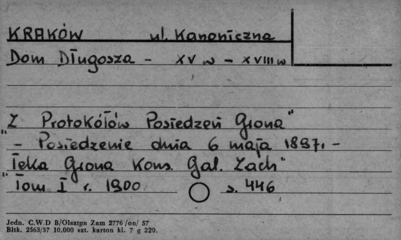 KRAKÓW ul. Kanoniczna
Dom Długosza - XV w - XVIII w
Z Protokółów Posiedzeń Grona"
"- Posiedzenie dnia 6 maja 1897. -
Teka Grona Kons. Gal. Zach"
"Tom I r. 1900 s. 446
Jedn. C.W.D B/Olsztyn Zam 2776/oo/ 57
Bltk. 2563/57 10,000 szt. karton kl. 7 g 220.